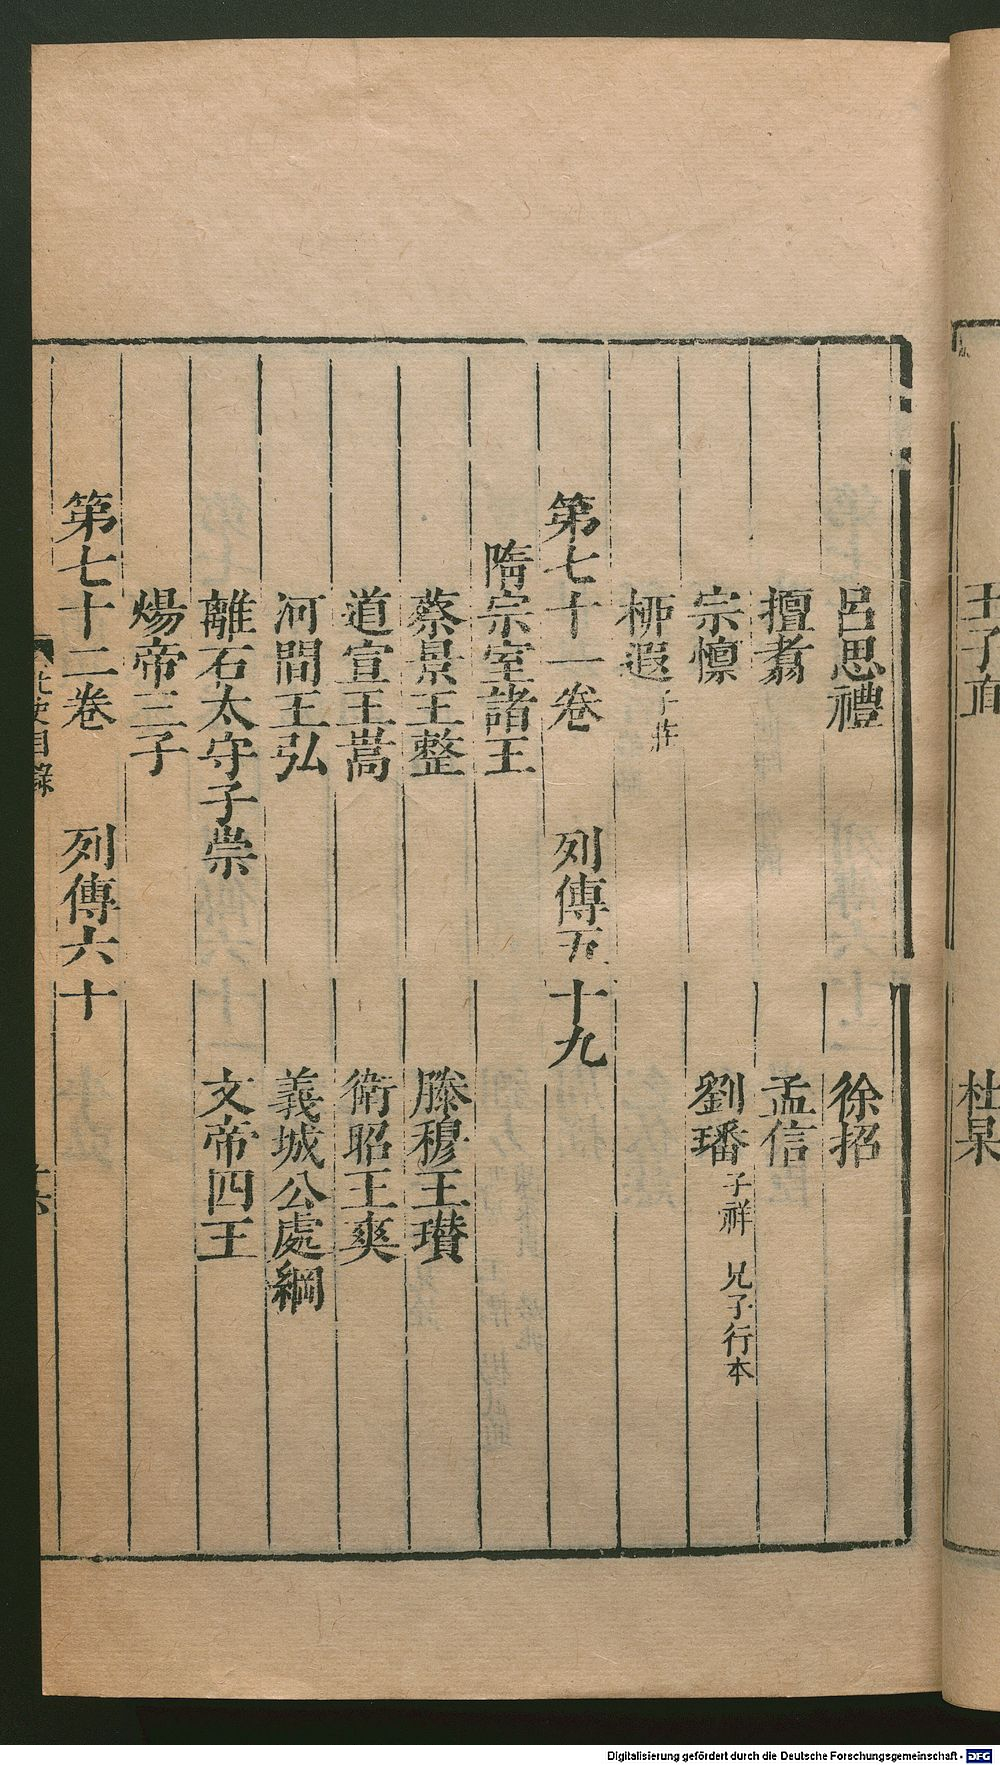 王子直
杜杲
呂思禮
徐招
檀翥
孟信
宗懍
劉璠 子祥 兄子行本
柳遐 子莊
第七十一卷
列傳五十九
隋宗室諸王
蔡景王整
滕穆王瓚
道宣王嵩
衛昭王爽
河間王弘
義城公處綱
離石太守子崇
文帝四王
煬帝三子
第七十二卷
列傳六十
北史目錄
Digitalisierung gefördert durch die Deutsche Forschungsgemeinschaft - DFG